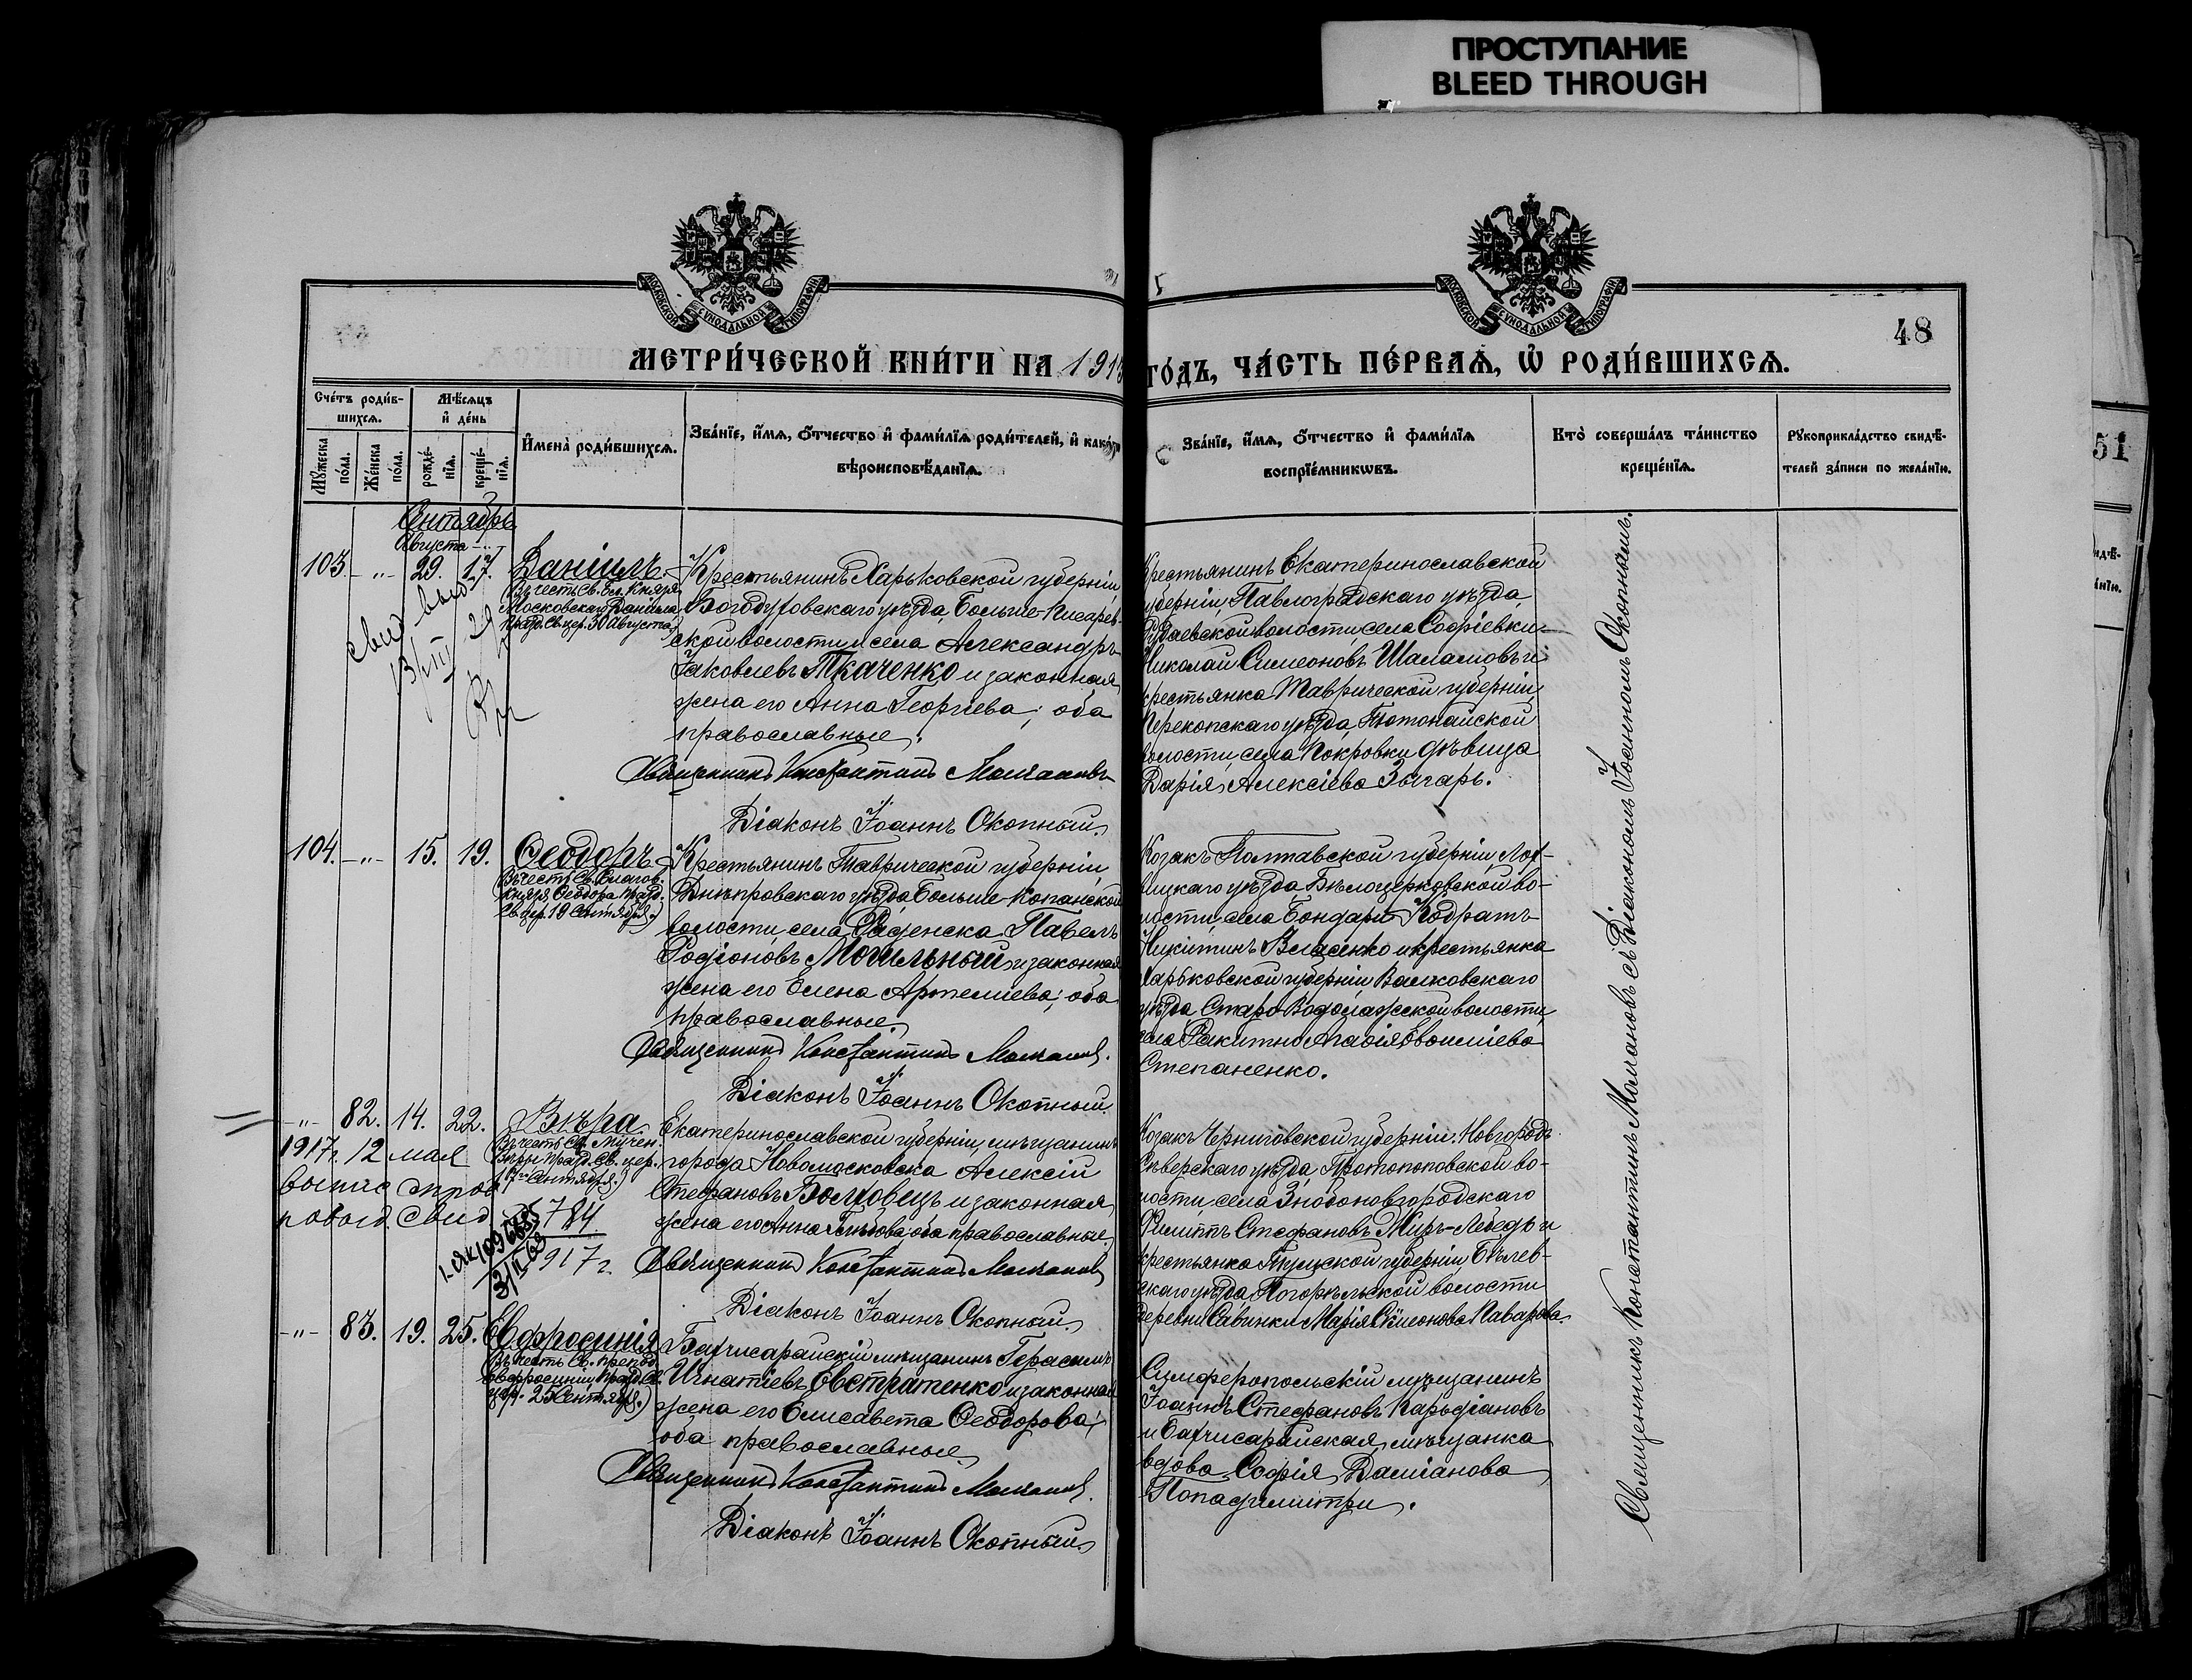 ПРОСТУПАНИЕ
BLEED THROUGH
МОСКОВСКОЙ СѴНОДАЛЬНОЙ ТИПОГРАФІИ
МОСКОВСКОЙ СѴНОДАЛЬНОЙ ТИПОГРАФІИ
48
51
МЕТРИ́ЧЕСКОЙ КНИ́ГИ НА 1913
ГО́ДЪ, ЧА́СТЬ ПЕ́РВАѦ, Ѡ҆ РОДИ́ВШИХСѦ.
Сче́тъ роди́в-
шихсѧ.
Мѣ́сѧцъ
и҆ де́нь
Мꙋ́жеска
по́ла.
Же́нска
по́ла.
рожде́-
нїѧ.
креще́-
нїѧ.
И҆мена̀ роди́вшихсѧ.
Зва́нїе, и҆́мѧ, ѻ҆́тчество и҆ фами́лїѧ роди́телей, и҆ како́гѡ
вѣроисповѣ́данїѧ.
Зва́нїе, и҆́мѧ, ѻ҆́тчество и҆ фами́лїѧ
воспрїе́мникѡвъ.
Кто̀ соверша́лъ та́инство
креще́нїѧ.
Рꙋкоприкла́дство свидѣ́-
телей за́писи по жела́нїю.
Сентябрь
Августа
103. -"- 29. 17. Даніилъ.
Въ честь Св. Бл. Князя
Московскаго Даніила
празд. Св. цер. 30 Августа)
свид выд
13/III 29
Крестьянинъ Харьковской губерніи
Богодуховскаго уѣзда, Больше-Писарев-
ской волости и села Александръ
Іаковлевъ Ткаченко и законная
жена его Анна Георгіева; оба
православные.
Священникъ Константинъ Молчановъ
Діаконъ Іоаннъ Окопный.
Крестьянинъ Екатеринославской
губерніи, Павлоградскаго уѣзда,
волости села Софіевки
Николай Симеоновъ Шаламовъ и
крестьянка Таврической губерніи
Перекопскаго уѣзда, Тотонайской
волости, села Покровки дѣвица
Дарія Алексіева Зычарь.
104. -"- 15. 19. Ѳеодоръ
Въ честь Св. Благов.
Князя Ѳеодора празд.
Св. цер. 19 Сентября.)
Крестьянинъ Таврической губерніи
Днѣпровскаго уѣзда Больше-Копанской
волости, села Раденска Павелъ
Родіоновъ Могильный и законная
жена его Елена Артеміева; оба
православные.
Священникъ Константинъ Молчановъ.
Діаконъ Іоаннъ Окопный.
Козакъ Полтавской губерніи, Лох-
вицкаго уѣзда Бѣлоцерковской во-
лости, села Бондари Кодратъ
Никитинъ Власенко и крестьянка
Харьковской губерніи Валковскаго
уѣзда Старо-Водолажской волости,
села Ракитно
Степаненко.
-"- 82. 14. 22. Вѣра.
Въ честь Св. Мучен.
Вѣры празд. Св. цер.
17го Сентября.)
1917г. 12 мая
выпис
Свид 784
917 г.
109685
3/II-63
Екатеринославской губерніи, мѣщанинъ
города Новомосковска Алексій
Стефановъ Болховецъ и законная
жена его Анна Глѣбова; оба православные.
Священникъ Константинъ Молчановъ
Діаконъ Іоаннъ Окопный.
Козакъ Черниговской губерніи, Новгородъ
Сѣверскаго уѣзда, Протопоповской во-
лости, села Знобоновгородскаго
Филиппъ Стефановъ Жиръ-Лебедь и
крестьянка Тульской губерніи, Бѣлев-
скаго уѣзда Погорѣльской волости
деревни Савинки Марія Симонова Каварова.
-"- 83. 19. 25. Евфросинія
Въ честь Св. препод.
Евфросиніи празд. Св.
цер. 25 Сентября.)
Бахчисарайскій мѣщанинъ Герасимъ
Игнатіевъ Евстратенко и законная
жена его Елисавета Ѳеодорова;
оба православные.
Священникъ Константинъ Молчановъ.
Діаконъ Іоаннъ Окопный.
Симферопольскій мѣщанинъ
Іоаннъ Стефановъ Карьдіановъ
и Бахчисарайская мѣщанка
вдова Софія Даміанова
Попадимитри.
Священникъ Константинъ Молчановъ съ Діакономъ Іоанномъ Окопнымъ.